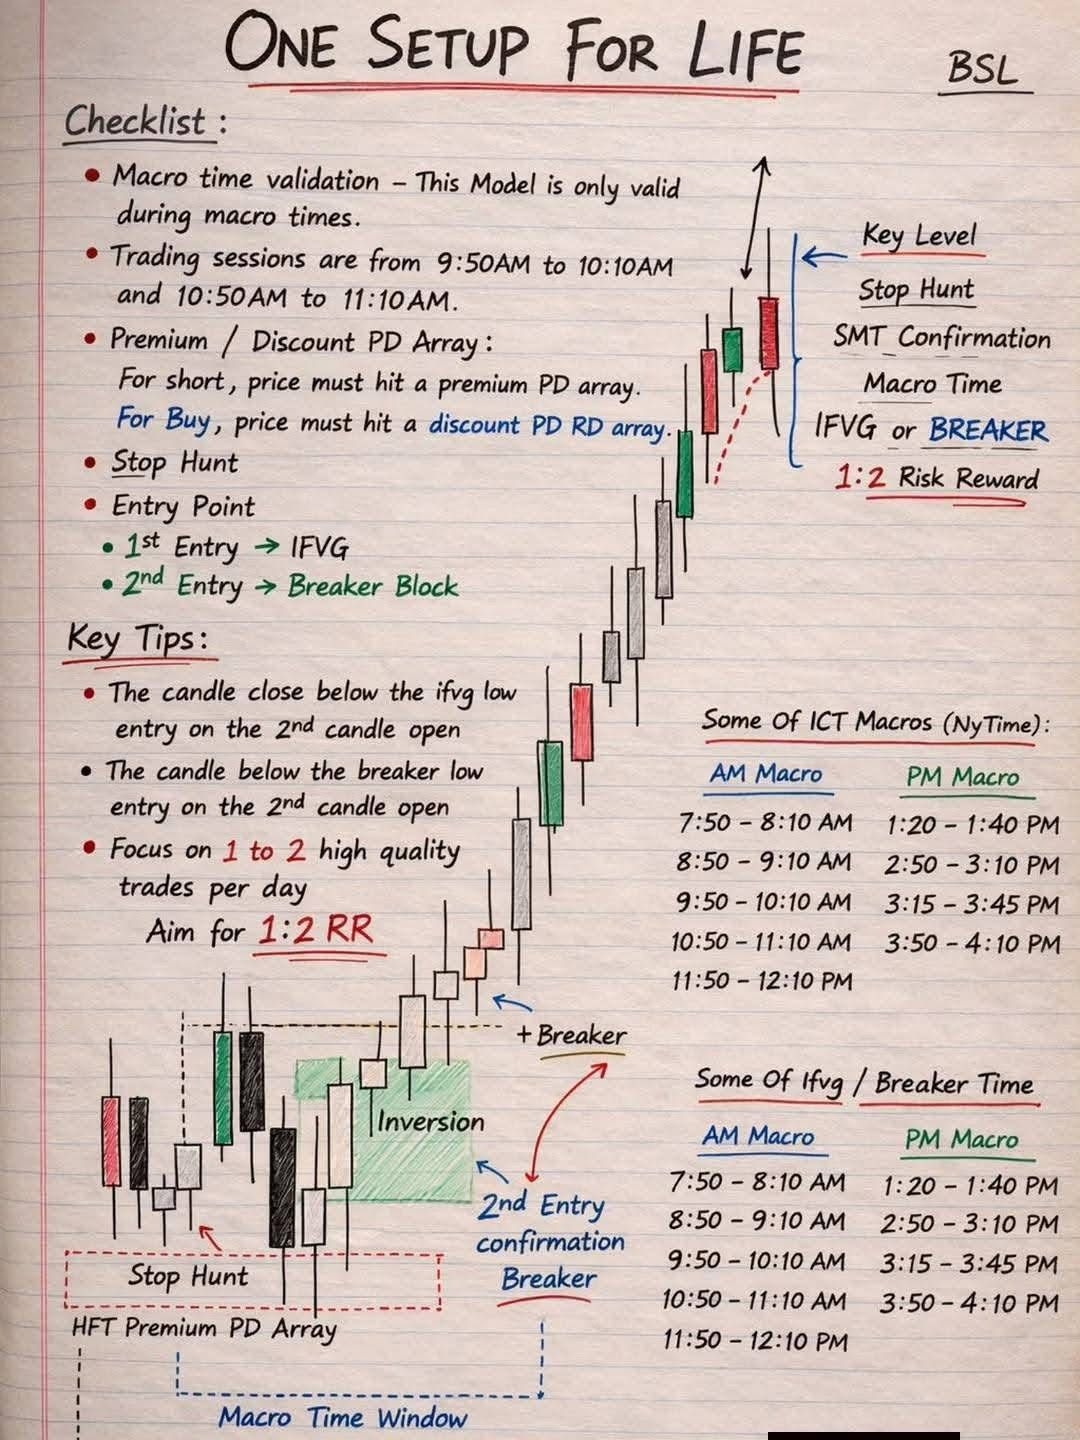 ONE SETUP FOR LIFE
BSL
Checklist :
• Macro time validation – This Model is only valid
during macro times.
• Trading sessions are from 9:50AM to 10:10AM
and 10:50AM to 11:10AM.
• Premium / Discount PD Array :
For short, price must hit a premium PD array.
For Buy, price must hit a discount PD RD array.
• Stop Hunt
• Entry Point
• 1st Entry → IFVG
• 2nd Entry → Breaker Block
Key Level
Stop Hunt
SMT Confirmation
Macro Time
IFVG or BREAKER
1:2 Risk Reward
Key Tips:
• The candle close below the ifvg low
entry on the 2nd candle open
• The candle below the breaker low
entry on the 2nd candle open
• Focus on 1 to 2 high quality
trades per day
Aim for 1:2 RR
Some Of ICT Macros (NyTime):
AM Macro PM Macro
7:50 – 8:10 AM 1:20 – 1:40 PM
8:50 – 9:10 AM 2:50 – 3:10 PM
9:50 – 10:10 AM 3:15 – 3:45 PM
10:50 – 11:10 AM 3:50 – 4:10 PM
11:50 – 12:10 PM
+ Breaker
Inversion
2nd Entry
confirmation
Breaker
Stop Hunt
HFT Premium PD Array
Macro Time Window
Some Of Ifvg / Breaker Time
AM Macro PM Macro
7:50 – 8:10 AM 1:20 – 1:40 PM
8:50 – 9:10 AM 2:50 – 3:10 PM
9:50 – 10:10 AM 3:15 – 3:45 PM
10:50 – 11:10 AM 3:50 – 4:10 PM
11:50 – 12:10 PM